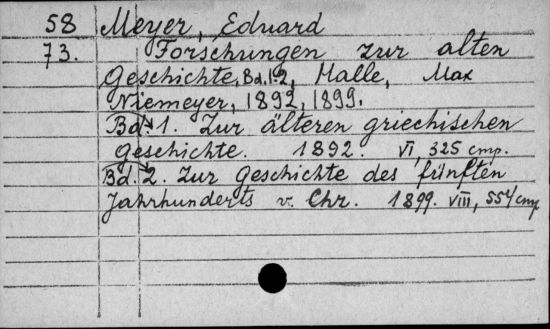 58 Meyer, Eduard
73. Forschungen zur alten
Geschichte, Bd. 1-2, Halle, Max
Niemeyer, 1892, 1899.
Bd. 1. Zur älteren griechischen
Geschichte. 1892. VI, 325 стр.
Bd. 2. Zur Geschichte des fünften
Jahrhunderts v. Chr. 1899. VIII, 554 стр.